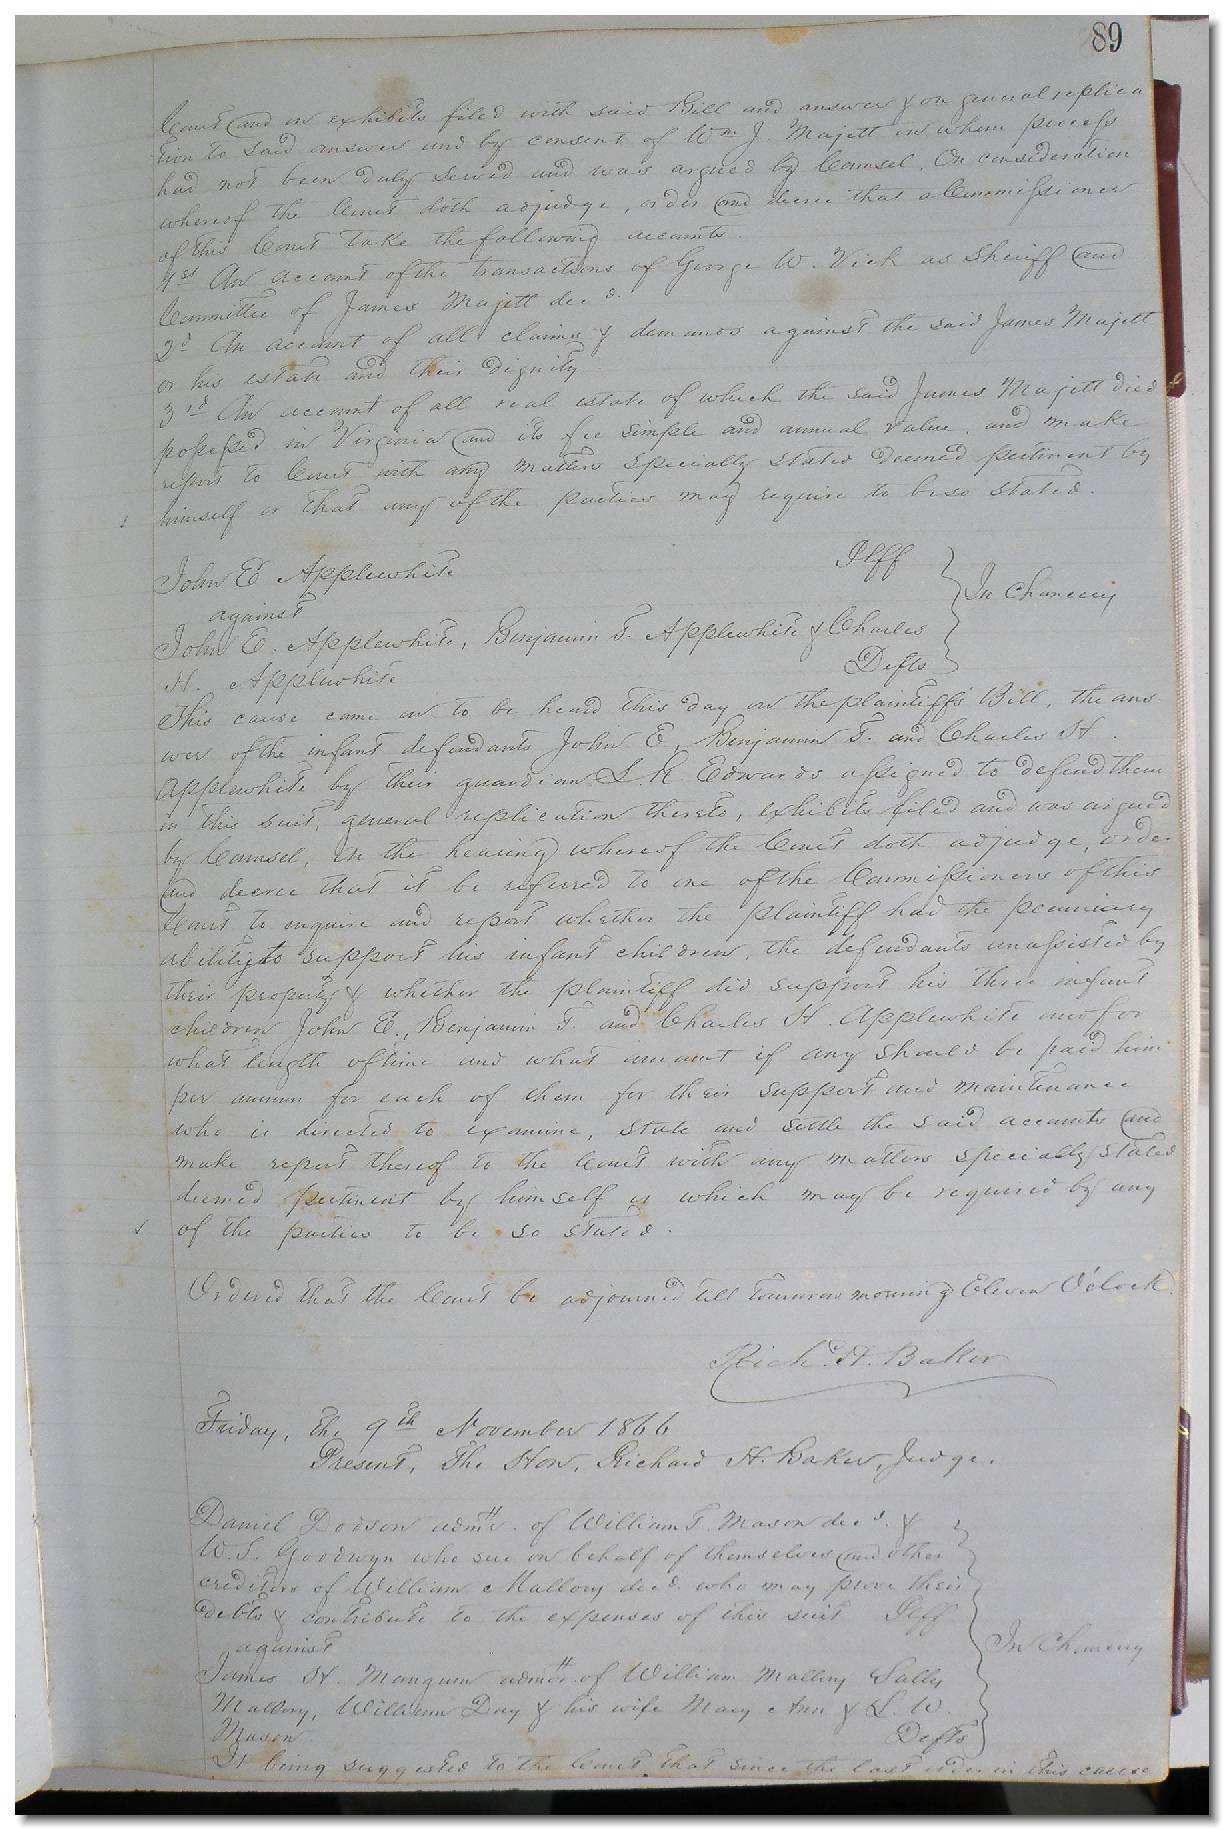 89
Court and on exhibits filed with said Bill and answer & on general replica
tion to said answer and by consent of Wm. J. Majett on whom process
had not been duly served and was argued by Counsel. On consideration
whereof the Court doth adjudge, order and decree that a Commissioner
of this Court take the following accounts.
1st An account of the transactions of George W. Vick as Sheriff and
Committee of James Majett decd.
2d An account of all claims & demands against the said James Majett
or his estate and their dignity
3rd An account of all real estate of which the said James Majett died
possessed in Virginia and its fee simple and annual value, and make
report to Court with any matters specially stated deemed pertinent by
himself or that any of the parties may require to be so stated.
John E Applewhite Plff
against
In Chancery
John E. Applewhite, Benjamin T. Applewhite & Charles
H. Applewhite Defts
This cause came on to be heard this day on the plaintiff's Bill, the ans
wer of the infant defendants John E, Benjamin T. and Charles H.
Applewhite by their guardian L. R. Edwards assigned to defend them
in this suit, general replication thereto, exhibits filed and was argued
by Counsel, On the hearing whereof the Court doth adjudge, order
and decree that it be referred to one of the Commissioners of this
Court to enquire and report whether the plaintiff had the pecuniary
ability to support his infant children, the defendants unassisted by
their property & whether the plaintiff did support his three infant
children John E., Benjamin T. and Charles H. Applewhite and for
what length of time and what amount if any should be paid him
per annum for each of them for their support and maintenance
who is directed to examine, state and settle the said accounts and
make report thereof to the Court with any matters specially stated
deemed pertinent by himself or which may be required by any
of the parties to be so stated.
Ordered that the Court be adjourned till tomorrow morning Eleven O'clock.
Rich. H. Baker
Friday, the 9th November 1866
Present, The Hon. Richard H. Baker, Judge.
Daniel Dodson admr. of William T. Mason decd. &
W. S. Goodwyn who sue on behalf of themselves and other
creditors of William Mallory decd. who may prove their
debts & contribute to the expenses of this suit Plff
against
In Chancery
James H. Mangum admr. of William Mallory Sally
Mallory, William Day & his wife Mary Ann & L. W.
Mason Defts
It being suggested to the Court that since the last order in this cause